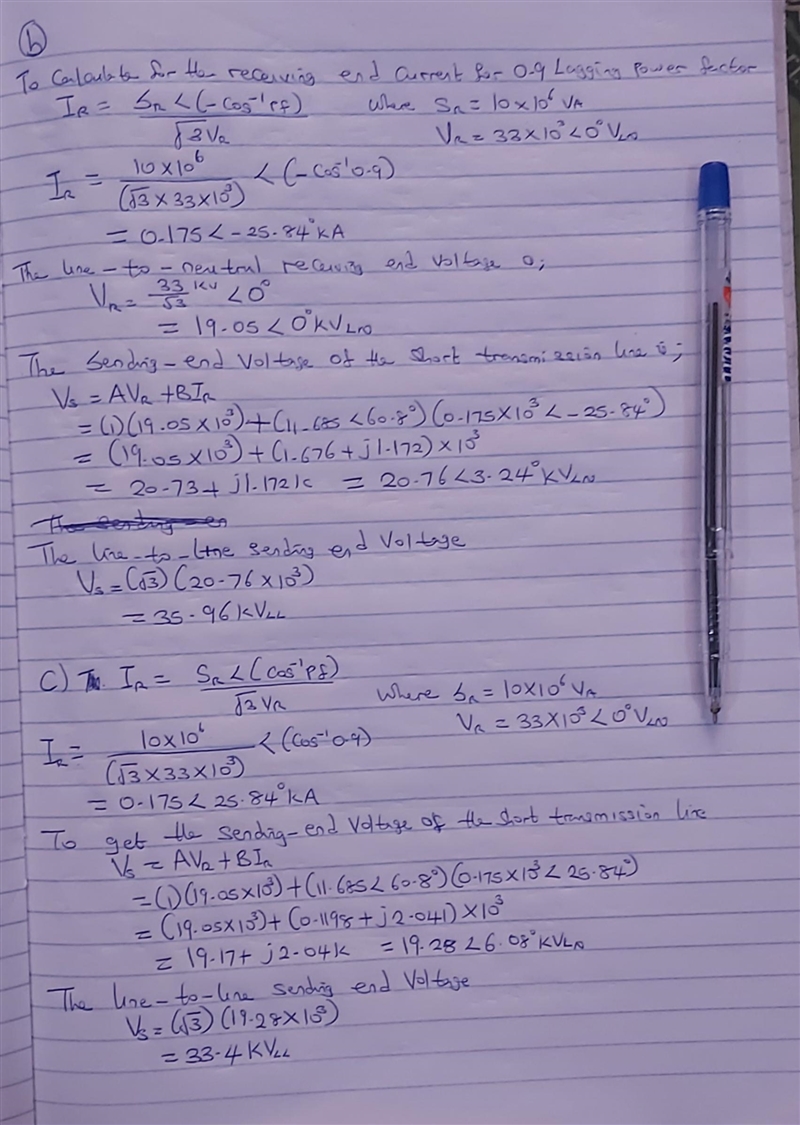 (b)
To Calculate for the receiving end current for 0.9 Lagging Power factor
I_R = S_R <(-Cos⁻¹Pf) / √3 V_R where S_R = 10×10⁶ VA
V_R = 33×10³<0° V_LN
I_R = 10×10⁶ / (√3 × 33×10³) < (-Cos⁻¹0.9)
= 0.175<-25.84° kA
The line-to-neutral receiving end voltage is;
V_R = 33/√3 KV <0°
= 19.05<0° KV_LN
The Sending-end Voltage of the Short transmission line is;
V_S = AV_R + BI_R
= (1)(19.05×10³)+(11.685<60.8°)(0.175×10³<-25.84°)
= (19.05×10³)+(1.676+j1.172)×10³
= 20.73+j1.172K = 20.76<3.24° KV_LN
The line-to-line sending end Voltage
V_S = (√3)(20.76×10³)
= 35.96 KV_LL
C) I_R = S_R <(Cos⁻¹Pf) / √3 V_R where S_R = 10×10⁶ VA
V_R = 33×10³<0° V_LN
I_R = 10×10⁶ / (√3×33×10³) <(Cos⁻¹0.9)
= 0.175<25.84° KA
To get the sending-end Voltage of the Short transmission line
V_S = AV_R + BI_R
= (1)(19.05×10³)+(11.685<60.8°)(0.175×10³<25.84°)
= (19.05×10³)+(0.1198+j2.041)×10³
= 19.17+j2.04K = 19.28<6.08° KV_LN
The line-to-line sending end Voltage
V_S = (√3)(19.28×10³)
= 33.4 KV_LL